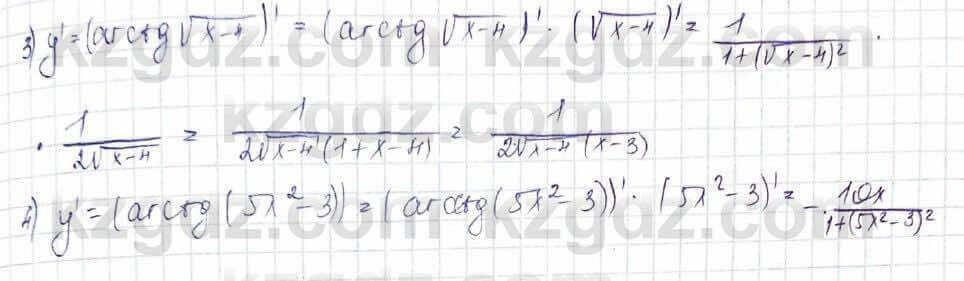 3) y' = (arctg √x-4)' = (arctg √x-4)' · (√x-4)' = 1/(1+(√x-4)²) ·
· 1/(2√x-4) = 1/(2√x-4 (1+x-4)) = 1/(2√x-4 (x-3))
4) y' = (arcctg (5x²-3)) = (arcctg (5x²-3))' · (5x²-3)' = - 10x/(1+(5x²-3)²)
kzgdz.com